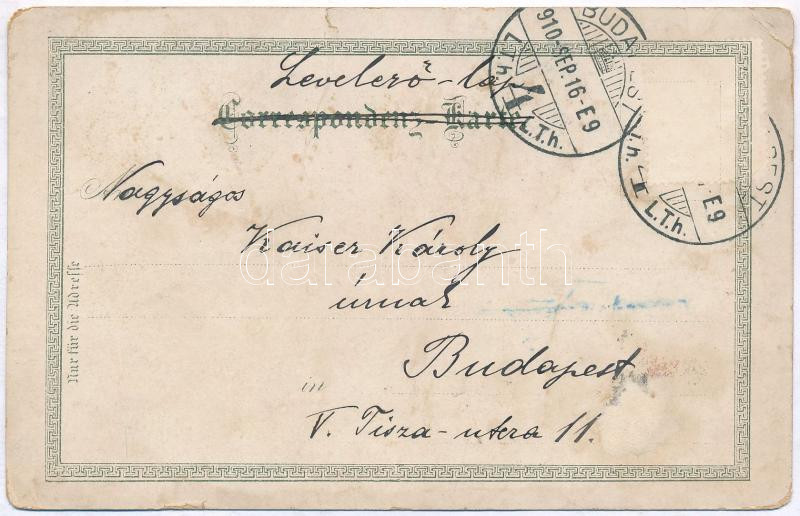 Levelező-lap
Correspondenz-Karte
BUDAPEST
910-SEP.16-E9
L.T.h.
L.T.h.
E9
L.T.h.
Nagyságos
Kaiser Károly
úrnak
Budapest
in
V. Tisza-utcza 11.
Nur für die Adresse
darabanth